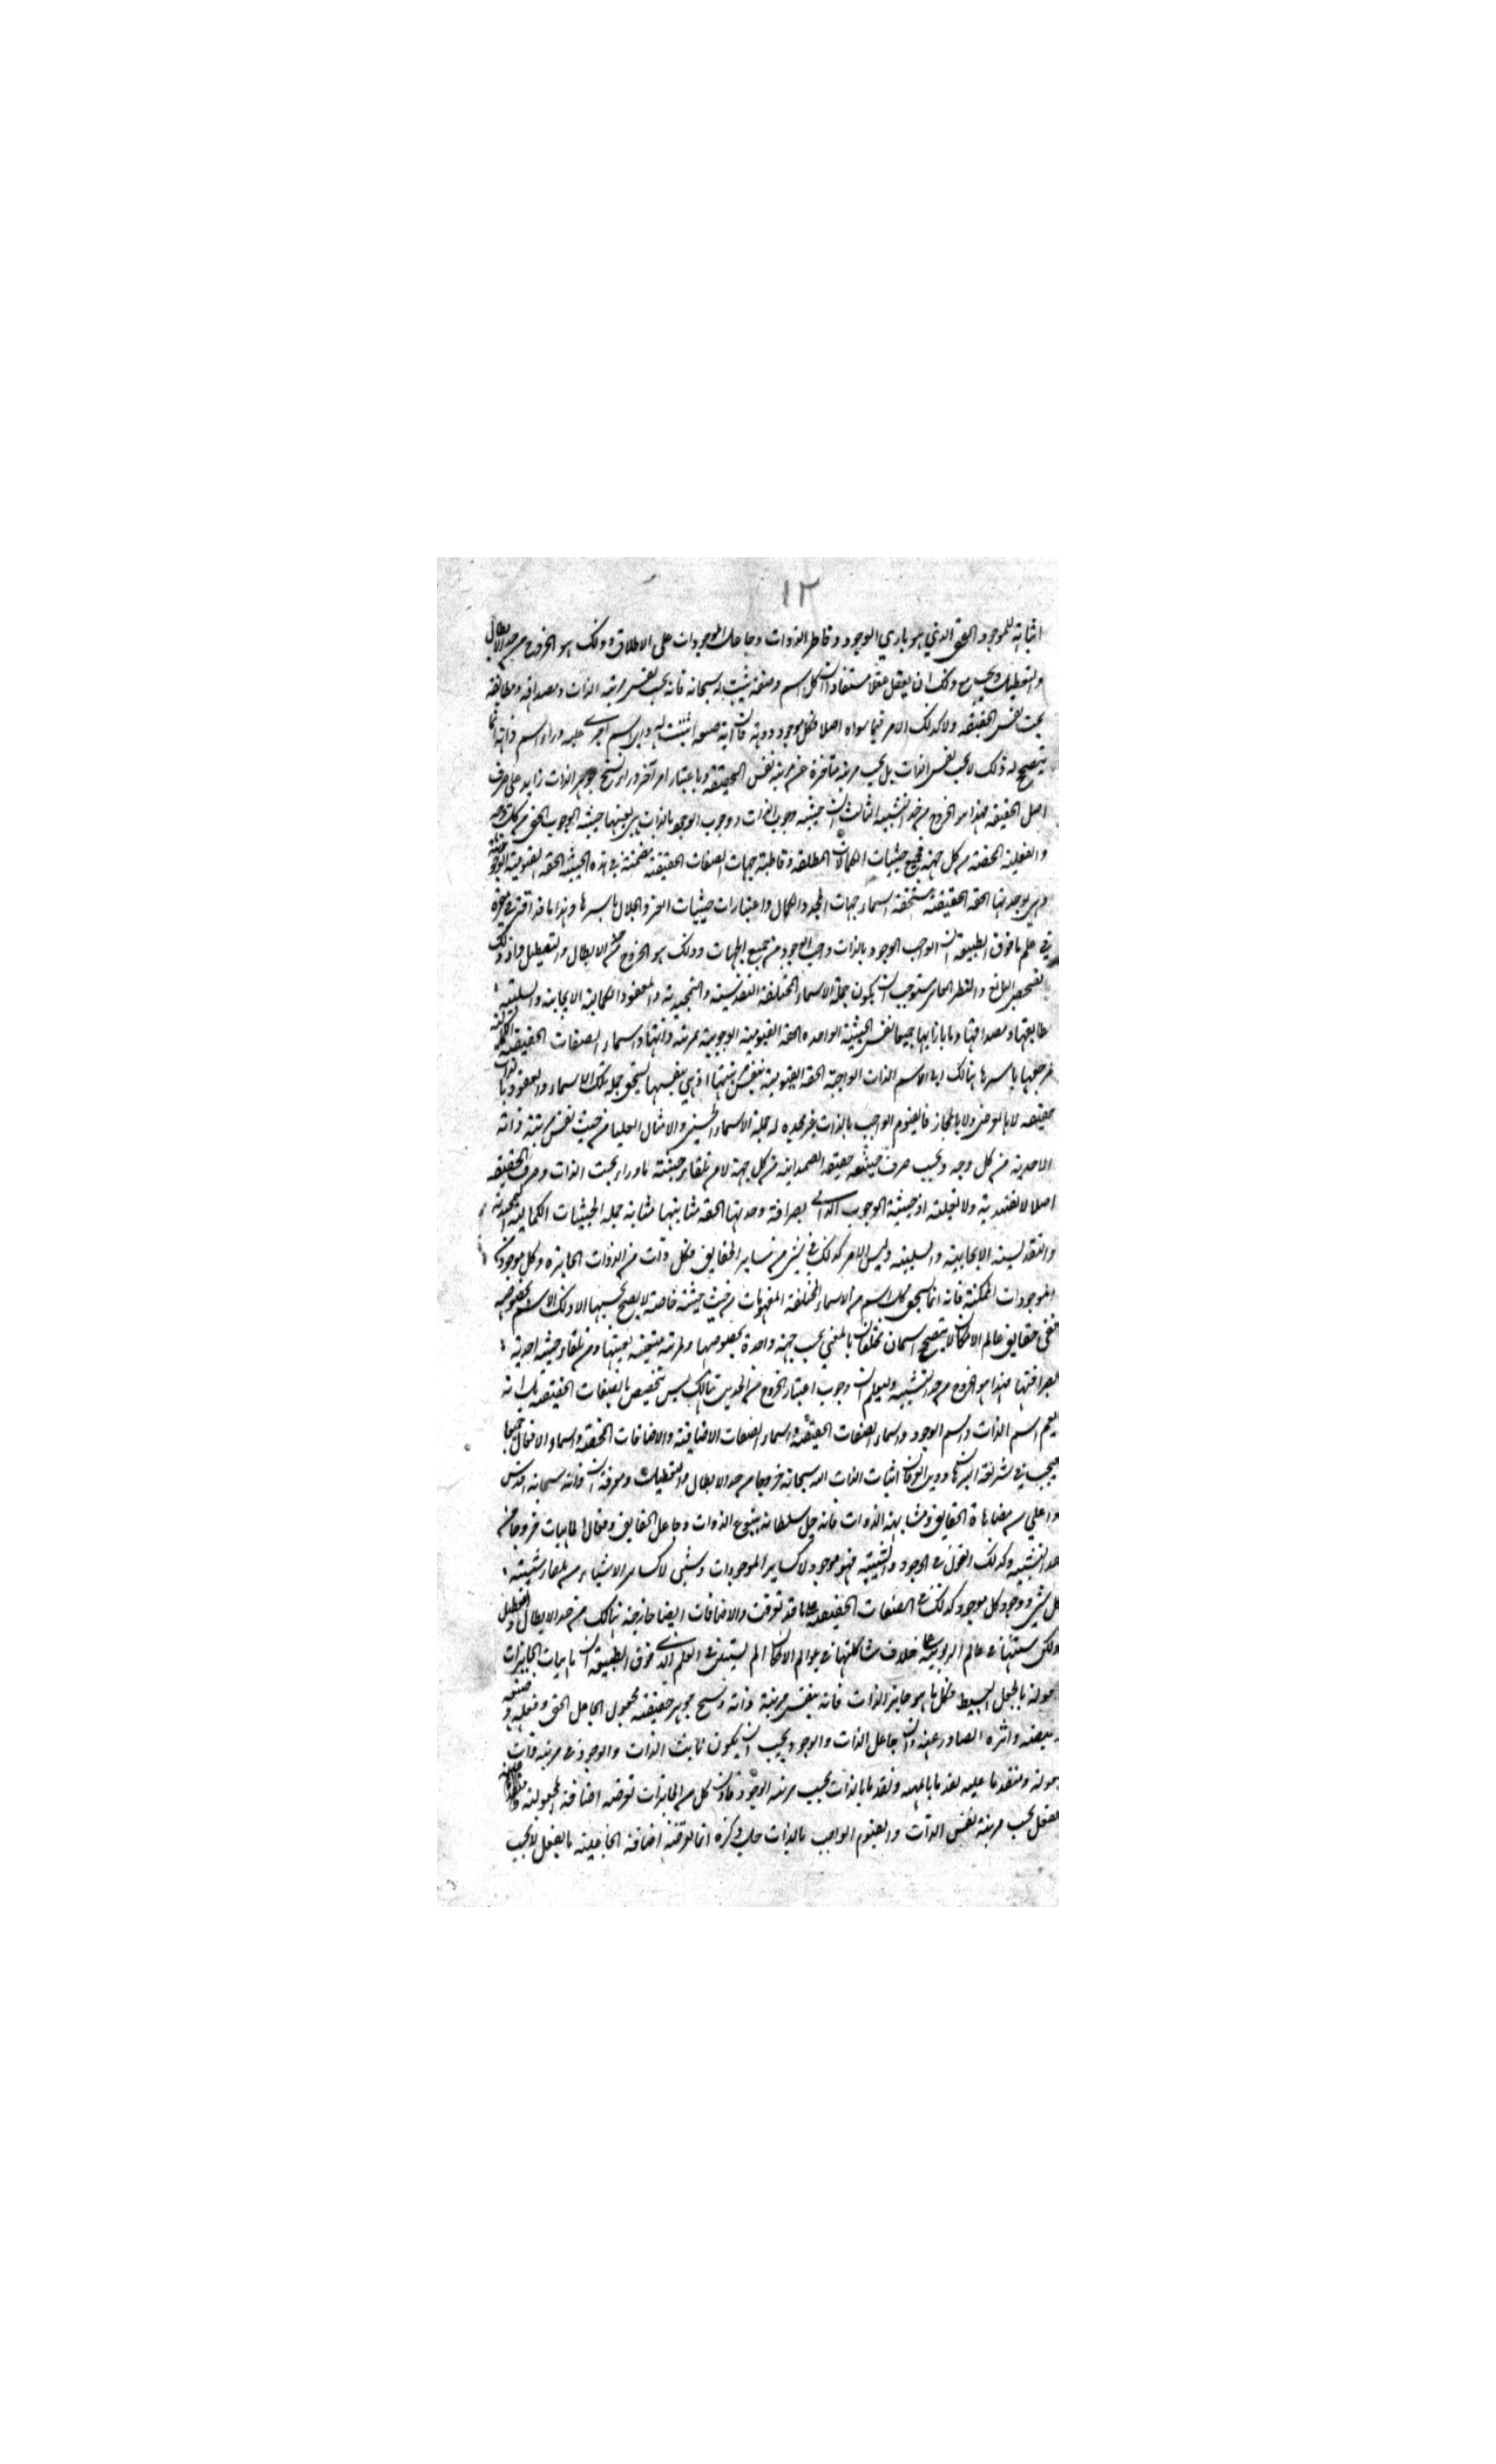 ١٢
اثباته للموجود الحق الذي هو باري الوجود و فاطر الذوات و جاعل الموجودات على الاطلاق و ذلك هو الخروج من حد الابطال
والتعطيل ان يعقل عقلا مستفادا ان كل اسم وصفة يثبت له سبحانه فانه بحسب نفس مرتبة الذات ومصداقه ومطابقه
بحت نفس الحقيقه ولا كذلك الامر فيما سواه اصلا فكل موجود دونه فان اية صفة اثبتت له واي اسم اجرى عليه وراء اسم ذاته انما
يتصحح له ذلك لا بحسب نفس الذات بل بحسب مرتبة متاخرة عن مرتبة نفس الحقيقة وباعتبار امر آخر وراء سنخ جوهر الذات زايد على صرف
اصل الحقيقه فهذا هو الخروج من حد التشبيه الثالث ان حيثيه وجوب الذات ووجوب الوجود بالذات هي بعينها حيثية الوجوب الحق من كل وجه
والفعلية المحضة من كل جهة فجميع حيثيات الكمالات المطلقه وقاطبة جهات الصفات الحقيقيه مضمنة في هذه الحيثية الحقه القيومية الوجوبيه
وهي بوحدتها الحقه الحقيقيه مستحقة اسماء جهات المجد والكمال واعتبارات حيثيات العز والجلال باسرها وهذا ما قد اقر في مقره
في علم ما فوق الطبيعه ان الواجب الوجود بالذات واجب الوجود من جميع الجهات وذلك هو الخروج من حد الابطال والتعطيل واذ ذلك
الفحص البالغ والنظر يستوجب ان يكون جملة الاسماء المختلفة التقديسية والتمجيديه والعقود الكمالية الايجابية والسلبيه
مطابقها ومصداقها وما بازائها جميعا نفس الحيثية الواحده الحقه القيوميه الوجوبيه بمرتبة ذاتها واسماء الصفات الحقيقيه
مرجعها باسرها هنالك الى اسم الذات الواجبة الحقه القيومية بنفس مرتبتها اذ هي بنفسها تستحق جملة تلك الاسماء والعقود بالذات
حقيقه لا بالعرض ولا بالمجاز فالقيوم الواجب بالذات جملة الاسماء الحسنى والامثال العليا من حيث نفس مرتبة ذاته
الاحدية من كل وجه وبحسب صرف حيثيه حقيقته الصمدانيه من كل جهة لا من تلقاء حيثية ما وراء بحت الذات وصرف الحقيقه
اصلا لا تقييديه ولا تعليليه اذ حيثية الوجوب الذاتي بصرافة وحدتها الحقه مثابتها مثابة جملة الحيثيات الكماليه التمجيديه
والتقديسيه الايجابيه والسلبيه وليس الامر كذلك في شئ من ساير الحقايق فكل ذات من الذوات الجايزه وكل موجود من
الموجودات الممكنة فانه انما يستحق كل اسم من الاسماء المختلفة المفهومات من حيث حيثية خاصة لا يصح بحسبها الا ذلك الاسم بخصوصه
ففي حقايق عالم الامكان لا يتصحح اسمان مختلفان بالمعنى بحسب جهة واحدة بخصوصها ومرتبة متعينه بعينها ومن تلقاء حيثيه احديه
بصرافتها فهذا هو الخروج من حد التشبيه وليعلم ان وجوب اعتبار الخروج من الحدين هنالك ليس يختص بالصفات الحقيقيه بل انه
يعم اسم الذات واسم الوجود واسماء الصفات الحقيقيه واسماء الصفات الاضافيه والاضافات المحضه واسماء الافعال جميعا
فيجب في شريعة البرهان ودين العرفان اثبات الذات له سبحانه خروجا من حد الابطال والتعطيل ومعرفة ان ذاته سبحانه اقدس
واعلى من مضاهاة الحقايق ومشابهة الذوات فانه جل سلطانه ينبوع الذوات وجاعل الحقايق وفعال الماهيات خروجا من
حد التشبيه وكذلك القول في الوجود والشيئيه فهو موجود لا كساير الموجودات وشئ لا كساير الاشياء من تلقاء شيئيته
كل شئ ووجود كل موجود كذلك في الصفات الحقيقيه على ما قد عرفت والاضافات ايضا خارجة هنالك من حد الابطال والتعطيل
ولكن سنتها في عالم الربوبيه على خلاف شاكلتها في عوالم الامكان الم يستبن في العلم الذي فوق الطبيعه ان ماهيات الجايزات
مجعولة بالجعل البسيط فكل ما هو جايز الذات فانه بنفس مرتبة ذاته وسنخ جوهر حقيقته مجعول الجاعل الحق وفعله وصنعه
وفيضه واثره الصادر عنه وان جاعل الذات والوجود يجب ان يكون ثابت الذات والوجود في مرتبة ذات
مجعوله ومتقدما عليه تقدما بالمهيه وتقدما بالذات بحسب مرتبه الوجود فاذن كل من الجايزات تعرضه اضافة المجعوليه
بالفعل بحسب مرتبة نفس الذات والقيوم الواجب بالذات جل ذكره انما تعرضه اضافة الجاعليه بالفعل لا بحسب